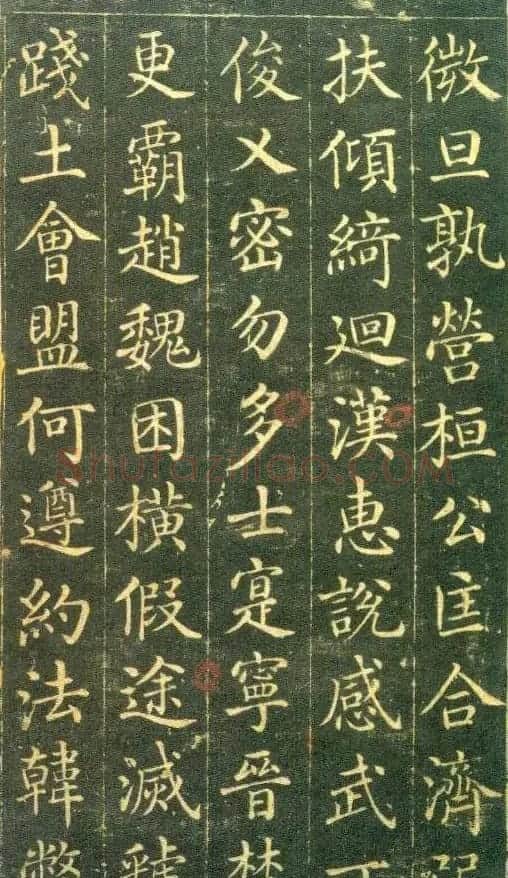 微旦孰營桓公匡合濟
扶傾綺迴漢惠說感武丁
俊乂密勿多士寔寧晉楚
更霸趙魏困橫假途滅虢
踐土會盟何遵約法韓
Shufaziliao.COM